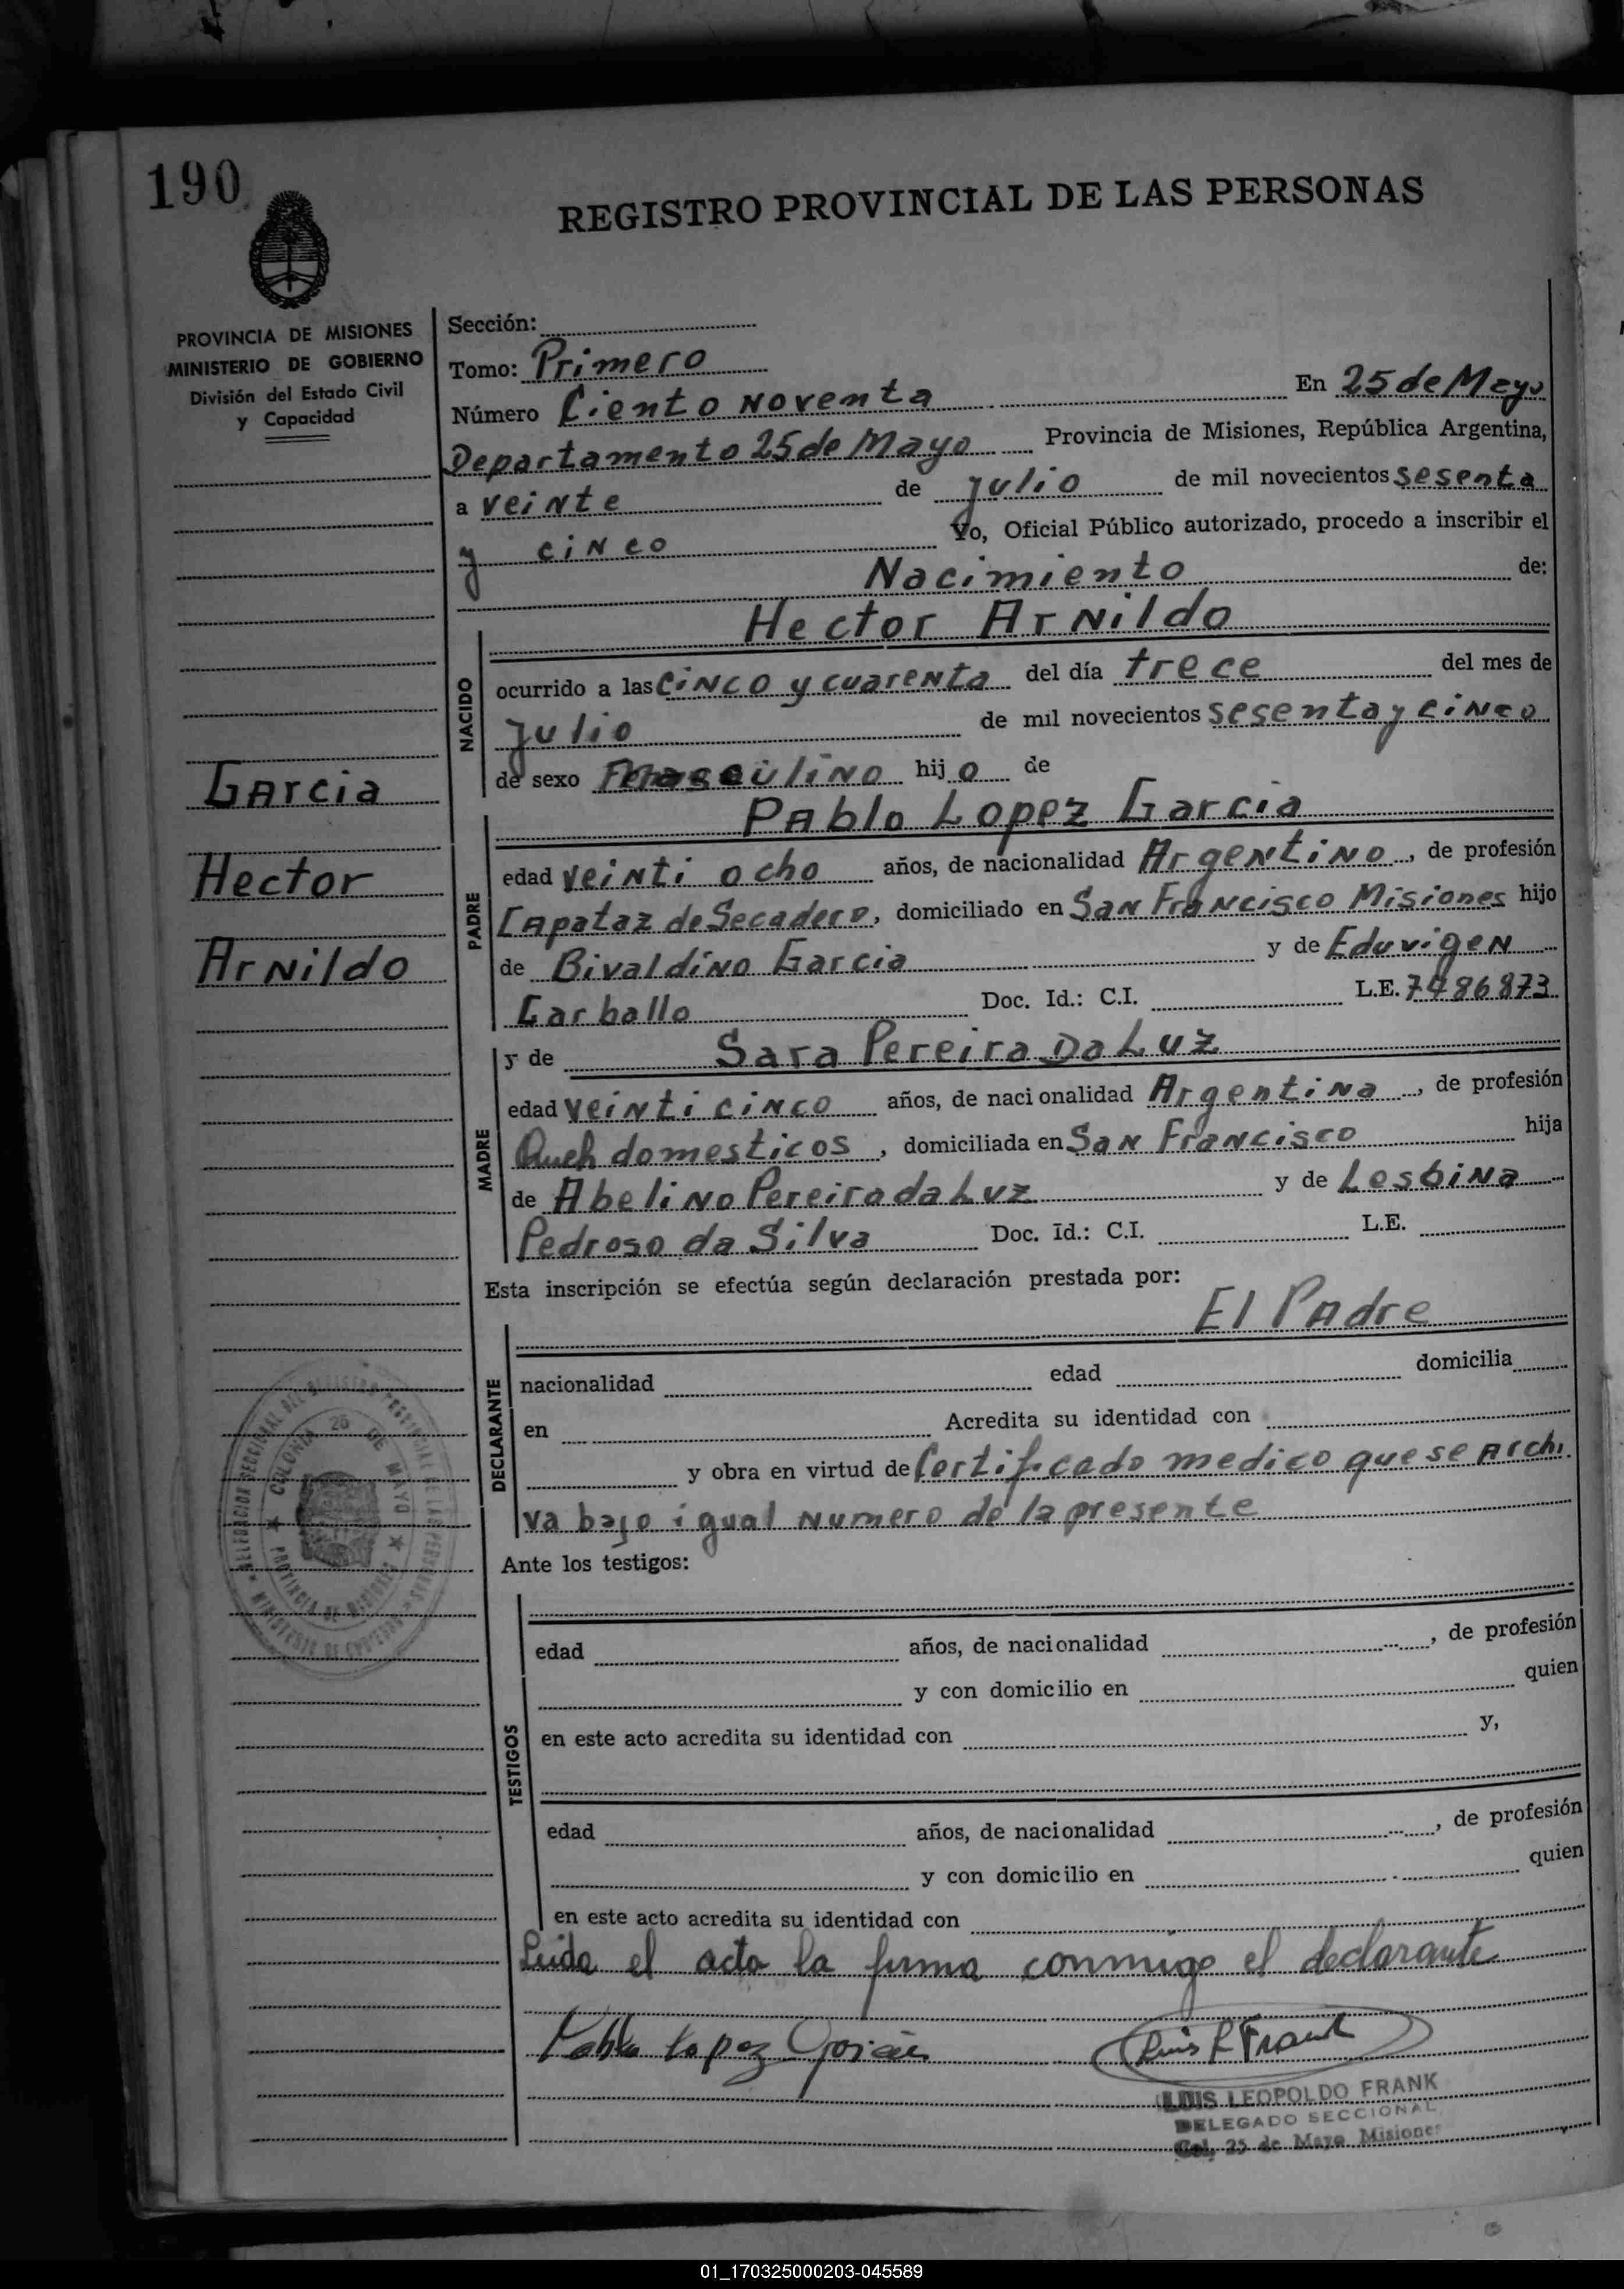 190
REGISTRO PROVINCIAL DE LAS PERSONAS
PROVINCIA DE MISIONES
MINISTERIO DE GOBIERNO
División del Estado Civil
y Capacidad
Garcia
Hector
Arnildo
Sección:
Tomo: Primero
Número Ciento Noventa En 25 de Mayo
Departamento 25 de Mayo Provincia de Misiones, República Argentina,
a veinte de julio de mil novecientos sesenta
y cinco Yo, Oficial Público autorizado, procedo a inscribir el
Nacimiento de:
Hector Arnildo
NACIDO
ocurrido a las cinco y cuarenta del día trece del mes de
julio de mil novecientos sesenta y cinco
de sexo Masculino hijo de
Pablo Lopez Garcia
PADRE
edad veinti ocho años, de nacionalidad Argentino, de profesión
Capataz de Secadero, domiciliado en San Francisco Misiones hijo
de Bivaldino Garcia y de Eduvigen
Carballo Doc. Id.: C.I. L.E. 7486873
y de Sara Pereira Da Luz
MADRE
edad veinti cinco años, de nacionalidad Argentina, de profesión
domesticos, domiciliada en San Francisco hija
de Abelino Pereira da Luz y de Lesbina
Pedroso da Silva Doc. Id.: C.I. L.E.
Esta inscripción se efectúa según declaración prestada por:
El Padre
DECLARANTE
nacionalidad edad domicilia
en Acredita su identidad con
y obra en virtud de Certificado medico que se archi
va bajo igual numero de la presente
Ante los testigos:
TESTIGOS
edad años, de nacionalidad , de profesión
y con domicilio en quien
en este acto acredita su identidad con y,
edad años, de nacionalidad , de profesión
y con domicilio en quien
en este acto acredita su identidad con
Leida el acta la firma conmigo el declarante
Pablo Lopez Garcia Luis L Frank
LUIS LEOPOLDO FRANK
DELEGADO SECCIONAL
Col. 25 de Mayo Misiones
DELEGACION SECCIONAL DEL REGISTRO PROVINCIAL DE LAS PERSONAS
MINISTERIO DE GOBIERNO
COLONIA 25 DE MAYO
PROVINCIA DE MISIONES
01_170325000203-045589